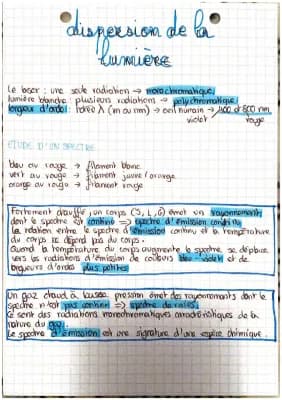 dispersion de la
lumière
Le laser : une seule radiation → monochromatique,
lumière blanche : plusieurs radiations → polychromatique,
longueur d'onde : notée λ (m ou nm) → oeil humain → 400 et 800 nm
violet rouge
ETUDE D'UN SPECTRE
bleu au rouge → filament blanc
vert au rouge → filament jaune / orange
orange au rouge → filament rouge
Fortement chauffé, un corps (S, L, G) émet un rayonnement,
dont le spectre est continu => spectre d'émission continu
la relation entre le spectre d'émission continu et la température
du corps ne dépend pas du corps.
Quand la température du corps augmente le spectre se déplace
vers les radiations d'émission de couleurs bleu - violet et de
longueurs d'onde plus petites
Un gaz chaud à basse pression émet des rayonnements dont le
spectre n'est pas continu => spectre de raies.
Ce sont des radiations monochromatiques caractéristiques de la
nature du gaz.
Le spectre d'émission est une signature d'une espèce chimique.